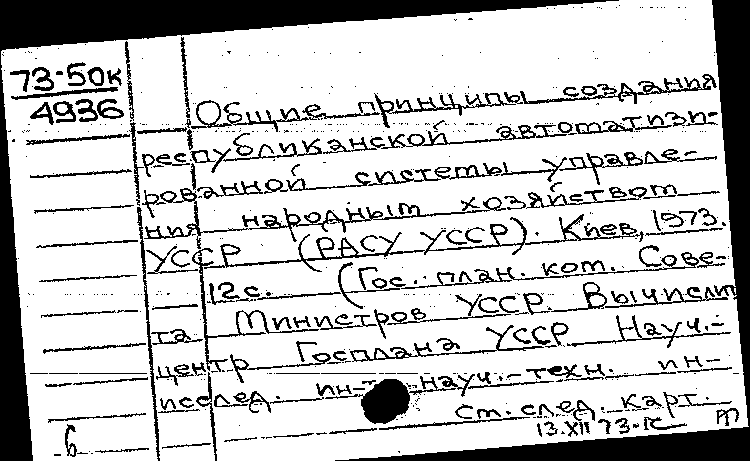 73-50к
4936
Общие принципы создания
республиканской автоматизи-
рованной системы управле-
ния народным хозяйством
УССР (РАСУ УССР). Киев, 1973.
12 с. (Гос. план. ком. Сове-
та Министров УССР. Вычислит
центр Госплана УССР. Науч.-
исслед. ин-т науч.-техн. ин-
см. след. карт.
13.XII 73-
б